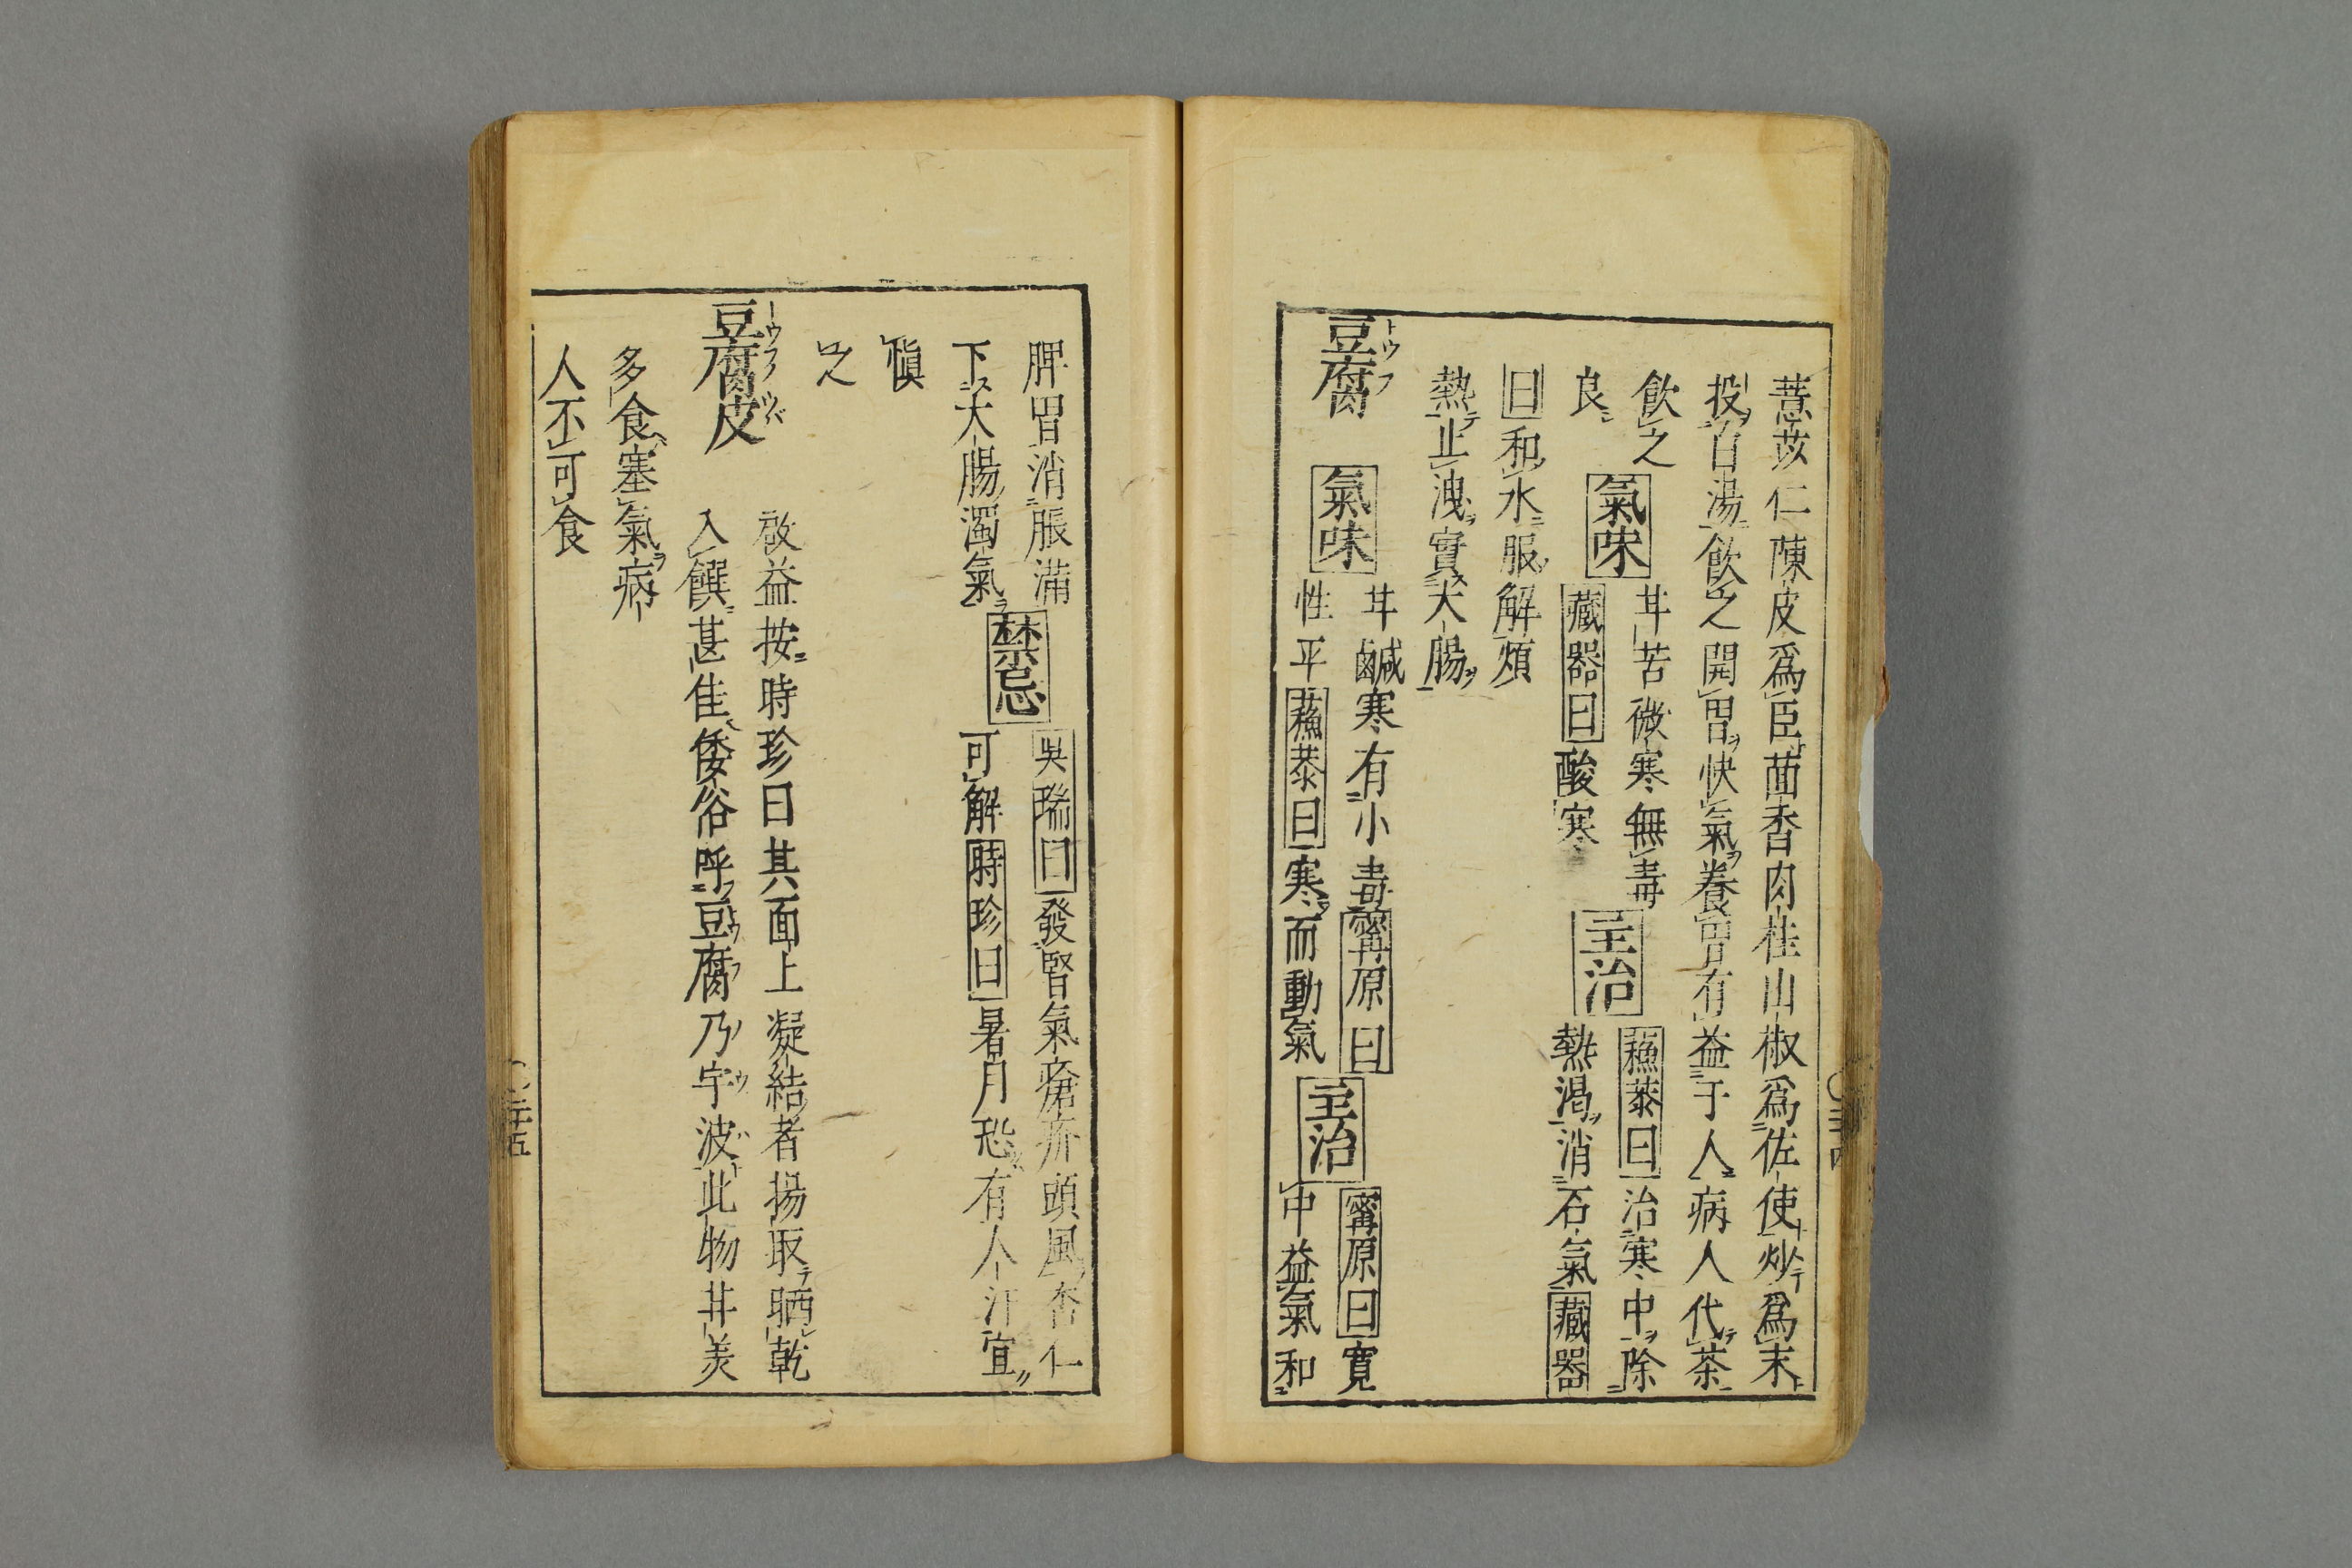 薏苡仁陳皮爲臣茴香肉桂山椒爲佐使炒爲末
投白湯飲之開胃快氣養胃有益于人病人代茶
飲之
良
氣味
甘苦微寒無毒
藏器曰酸寒
主治
蘓恭曰治寒中除
熱渇消石氣藏器
曰和水服解煩
熱止洩實大腸
豆腐
氣味
甘鹹寒有小毒寗原曰
性平蘓恭曰寒而動氣
主治
寗原曰寛
中益氣和
脾胃消脹滿
下大腸濁氣
禁忌
吳瑞曰發腎氣瘡疥頭風杏仁
可解時珍曰暑月恐有人汗宜
愼
之
豆腐皮
啟益按時珍曰其面上凝結者揚取晒乾
入饌甚佳倭俗呼豆腐乃宇波此物甘美
多食塞氣病
人不可食